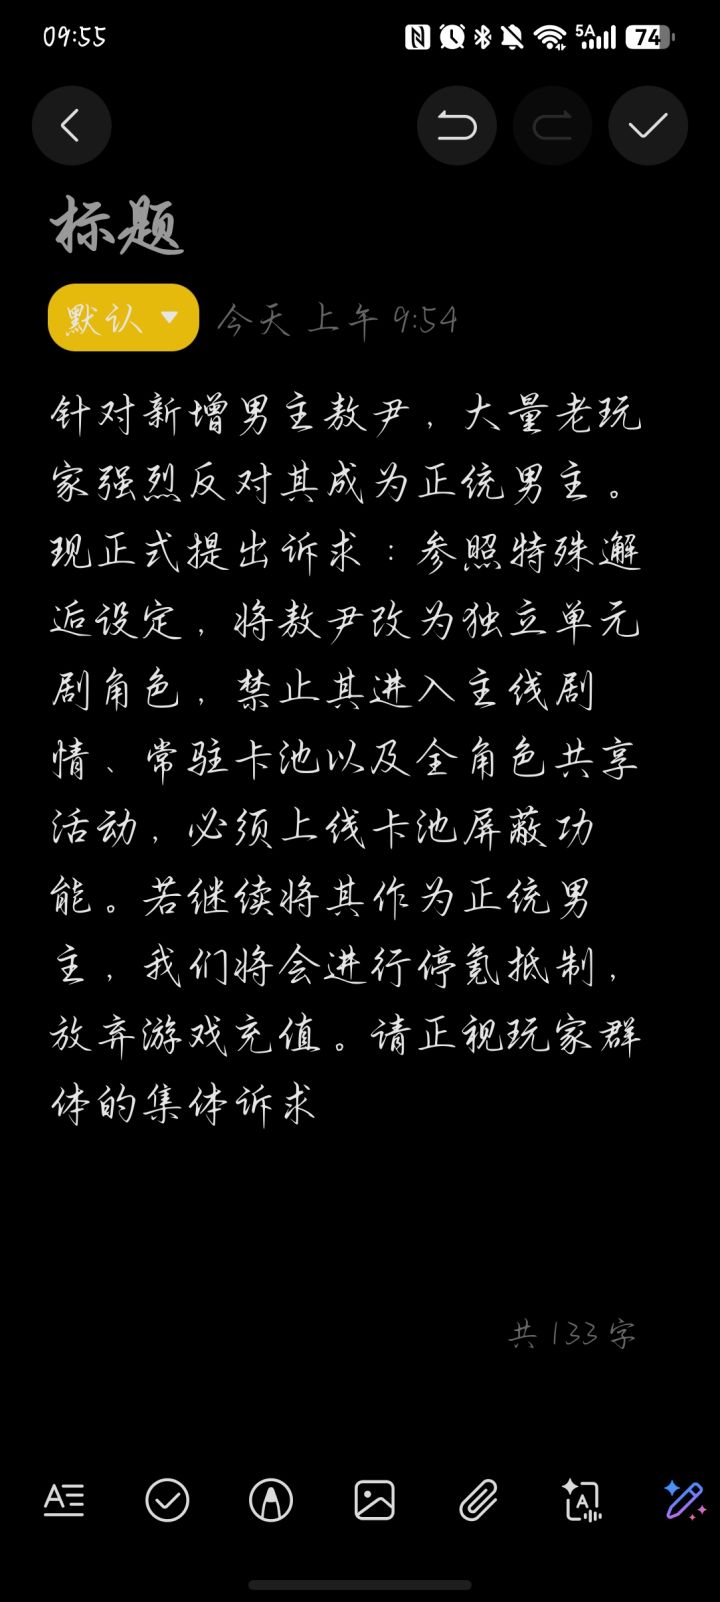 09:55
5A 74
标题
默认 今天 上午 9:54
针对新增男主敖尹，大量老玩
家强烈反对其成为正统男主。
现正式提出诉求：参照特殊邂
逅设定，将敖尹改为独立单元
剧角色，禁止其进入主线剧
情、常驻卡池以及全角色共享
活动，必须上线卡池屏蔽功
能。若继续将其作为正统男
主，我们将会进行停氪抵制，
放弃游戏充值。请正视玩家群
体的集体诉求
共 133 字